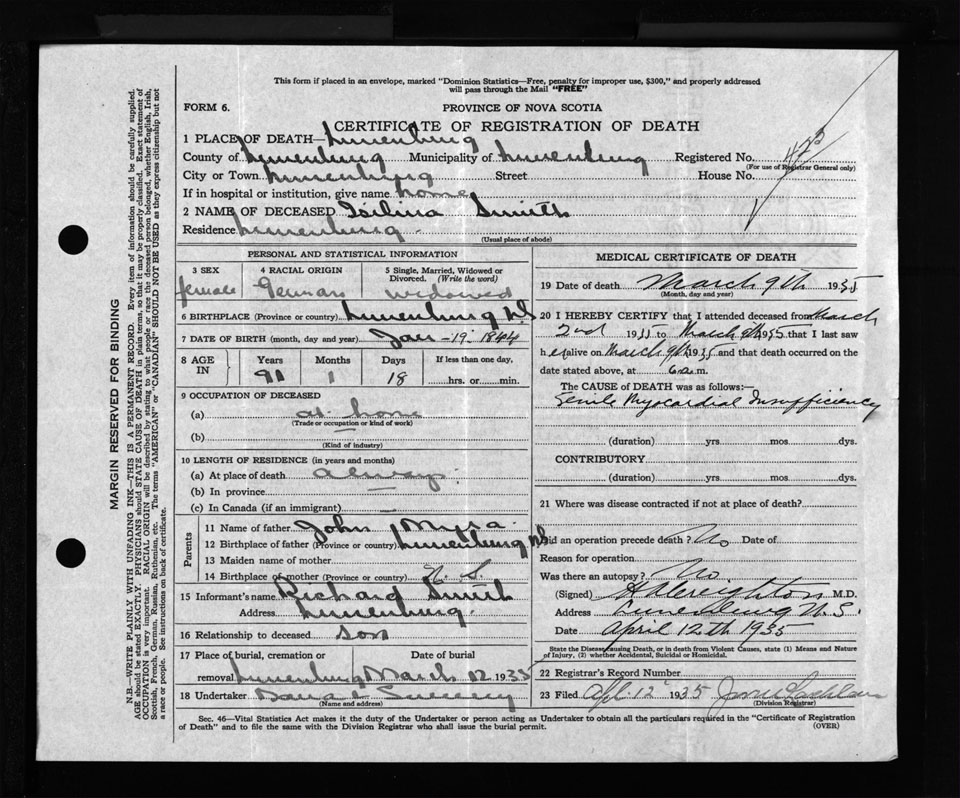 This form if placed in an envelope, marked "Dominion Statistics—Free, penalty for improper use, $300," and properly addressed
will pass through the Mail "FREE"
FORM 6.
PROVINCE OF NOVA SCOTIA
CERTIFICATE OF REGISTRATION OF DEATH
1 PLACE OF DEATH— Lunenburg
County of Lunenburg Municipality of Lunenburg Registered No.
(For use of Registrar General only)
City or Town Lunenburg Street House No.
If in hospital or institution, give name home
2 NAME OF DECEASED Smith
Residence Lunenburg
(Usual place of abode)
PERSONAL AND STATISTICAL INFORMATION
3 SEX female
4 RACIAL ORIGIN German
5 Single, Married, Widowed or Divorced. (Write the word) widowed
6 BIRTHPLACE (Province or country) Lunenburg N.S
7 DATE OF BIRTH (month, day and year) Jan - 19 - 1844
8 AGE IN Years 91 Months 1 Days 18 If less than one day, hrs. or min.
9 OCCUPATION OF DECEASED
(a) at home
(Trade or occupation or kind of work)
(b) —
(Kind of industry)
10 LENGTH OF RESIDENCE (in years and months)
(a) At place of death always
(b) In province —
(c) In Canada (if an immigrant) —
Parents
11 Name of father John Myra
12 Birthplace of father (Province or country) Lunenburg N.S
13 Maiden name of mother
14 Birthplace of mother (Province or country) N. S.
15 Informant's name Richard Smith
Address Lunenburg
16 Relationship to deceased son
17 Place of burial, cremation or removal Lunenburg
Date of burial March 12 1935
18 Undertaker
(Name and address)
MEDICAL CERTIFICATE OF DEATH
19 Date of death March 9th 1935
(Month, day and year)
20 I HEREBY CERTIFY that I attended deceased from March
2nd 1935 to March 9th 1935 that I last saw
her alive on March 9th 1935 and that death occurred on the
date stated above, at 6 a.m.
The CAUSE OF DEATH was as follows:—
Senile Myocardial Insufficiency
(duration) yrs mos dys.
CONTRIBUTORY
(duration) yrs. mos. dys.
21 Where was disease contracted if not at place of death?
Did an operation precede death? No Date of
Reason for operation
Was there an autopsy? No
(Signed) Creighton M.D.
Address Lunenburg N.S.
Date April 12th 1935
State the Disease causing Death, or in death from Violent Causes, state (1) Means and Nature
of Injury, (2) whether Accidental, Suicidal or Homicidal.
22 Registrar's Record Number
23 Filed Apl. 12 1935
(Division Registrar)
Sec. 46—Vital Statistics Act makes it the duty of the Undertaker or person acting as Undertaker to obtain all the particulars required in the "Certificate of Registration
of Death" and to file the same with the Division Registrar who shall issue the burial permit.
(OVER)
MARGIN RESERVED FOR BINDING
N.B.—WRITE PLAINLY WITH UNFADING INK—THIS IS A PERMANENT RECORD. Every item of information should be carefully supplied.
AGE should be stated EXACTLY. PHYSICIANS should STATE CAUSE OF DEATH in plain terms, so that it may be properly classified. Exact statement of
OCCUPATION is very important. RACIAL ORIGIN will be described by stating to what people or race the deceased person belonged, whether English, Irish,
Scottish, French, German, Russian, Ruthenian, etc. The terms "AMERICAN" or "CANADIAN" SHOULD NOT BE USED as they express citizenship but not
a race or people. See instructions on back of certificate.